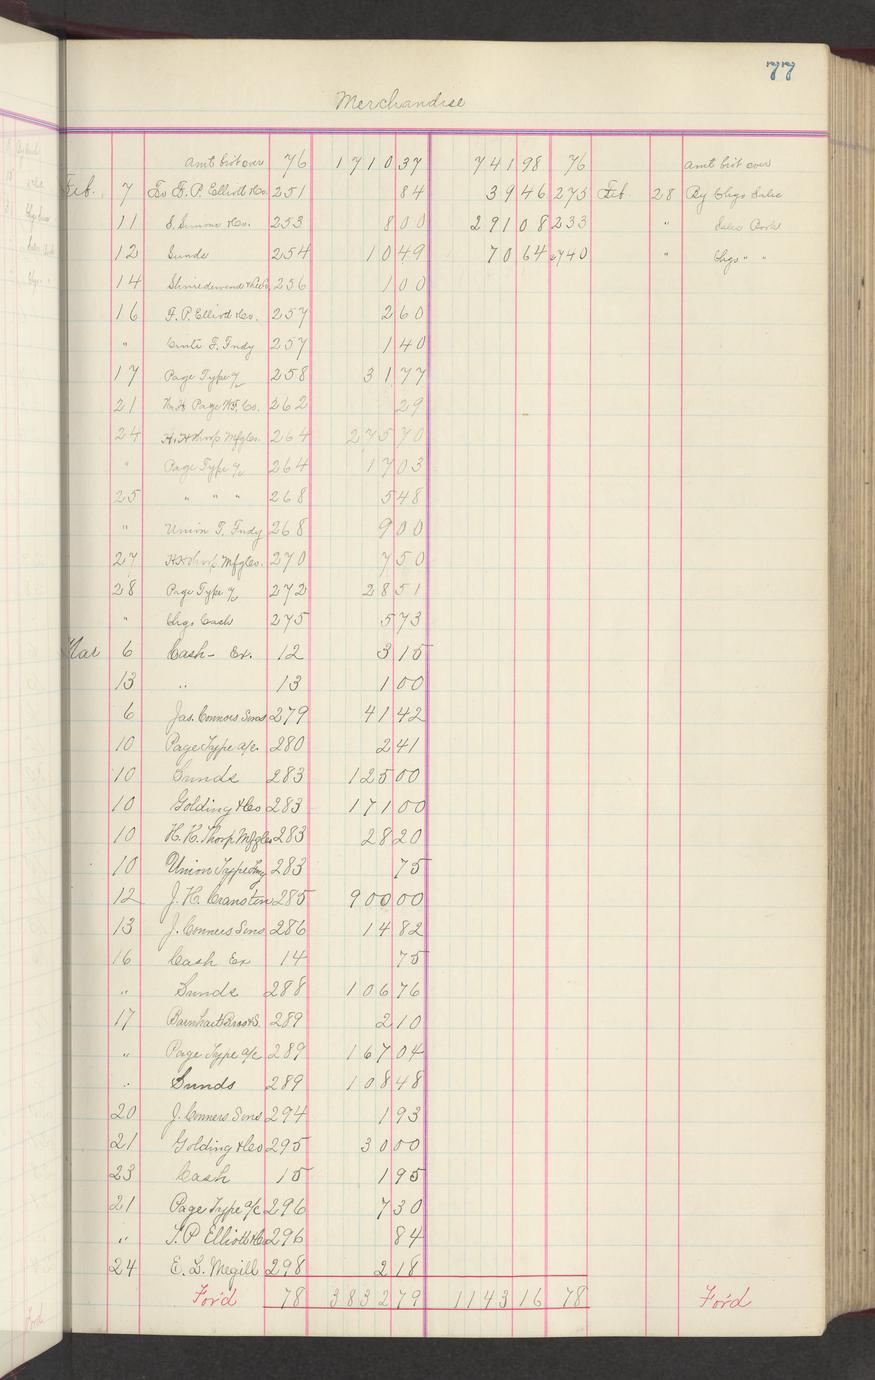 77
Merchandise
amt bro't over 76 1710 37 741 98 76 amt bro't over
Feb. 7 To F. P. Elliott & Co. 251 84 39 46 275 Feb. 28 By Chgs Sales
11 S. Simons & Co. 253 8 00 291 08 233 " Sales Book
12 Sunds 254 10 49 70 64 740 " Chgs " "
14 256 1 00
16 F. P. Elliott & Co. 257 2 60
" T. Fndy 257 1 40
17 Page Type a/c 258 31 77
21 Wm H. Page W.T. Co. 262 29
24 H. H. Thorp Mfg Co. 264 275 70
" Page Type a/c 264 17 03
25 " " " 268 5 48
" Union T. Fndy 268 9 00
27 H H Thorp Mfg Co. 270 7 50
28 Page Type a/c 272 28 51
" Chgs Cash 275 5 73
Mar 6 Cash - Ex. 12 3 15
13 " 13 1 00
6 Jas. Connors Sons 279 41 42
10 Page Type a/c. 280 2 41
10 Sunds 283 125 00
10 Golding & Co 283 171 00
10 H. H. Thorp Mfg Co 283 28 20
10 Union Type Fdy 283 75
12 J. H. Cranston 285 900 00
13 J. Conners Sons 286 14 82
16 Cash Ex 14 75
" Sunds 288 106 76
17 Barnhart Bros & S. 289 2 10
" Page Type a/c 289 167 04
" Sunds 289 108 48
20 J. Conners Sons 294 1 93
21 Golding & Co 295 30 00
23 Cash 15 1 95
21 Page Type a/c 296 7 30
" F. P Elliott & Co 296 84
24 E. L. Megill 298 2 18
For'd 78 3832 79 1143 16 78 For'd